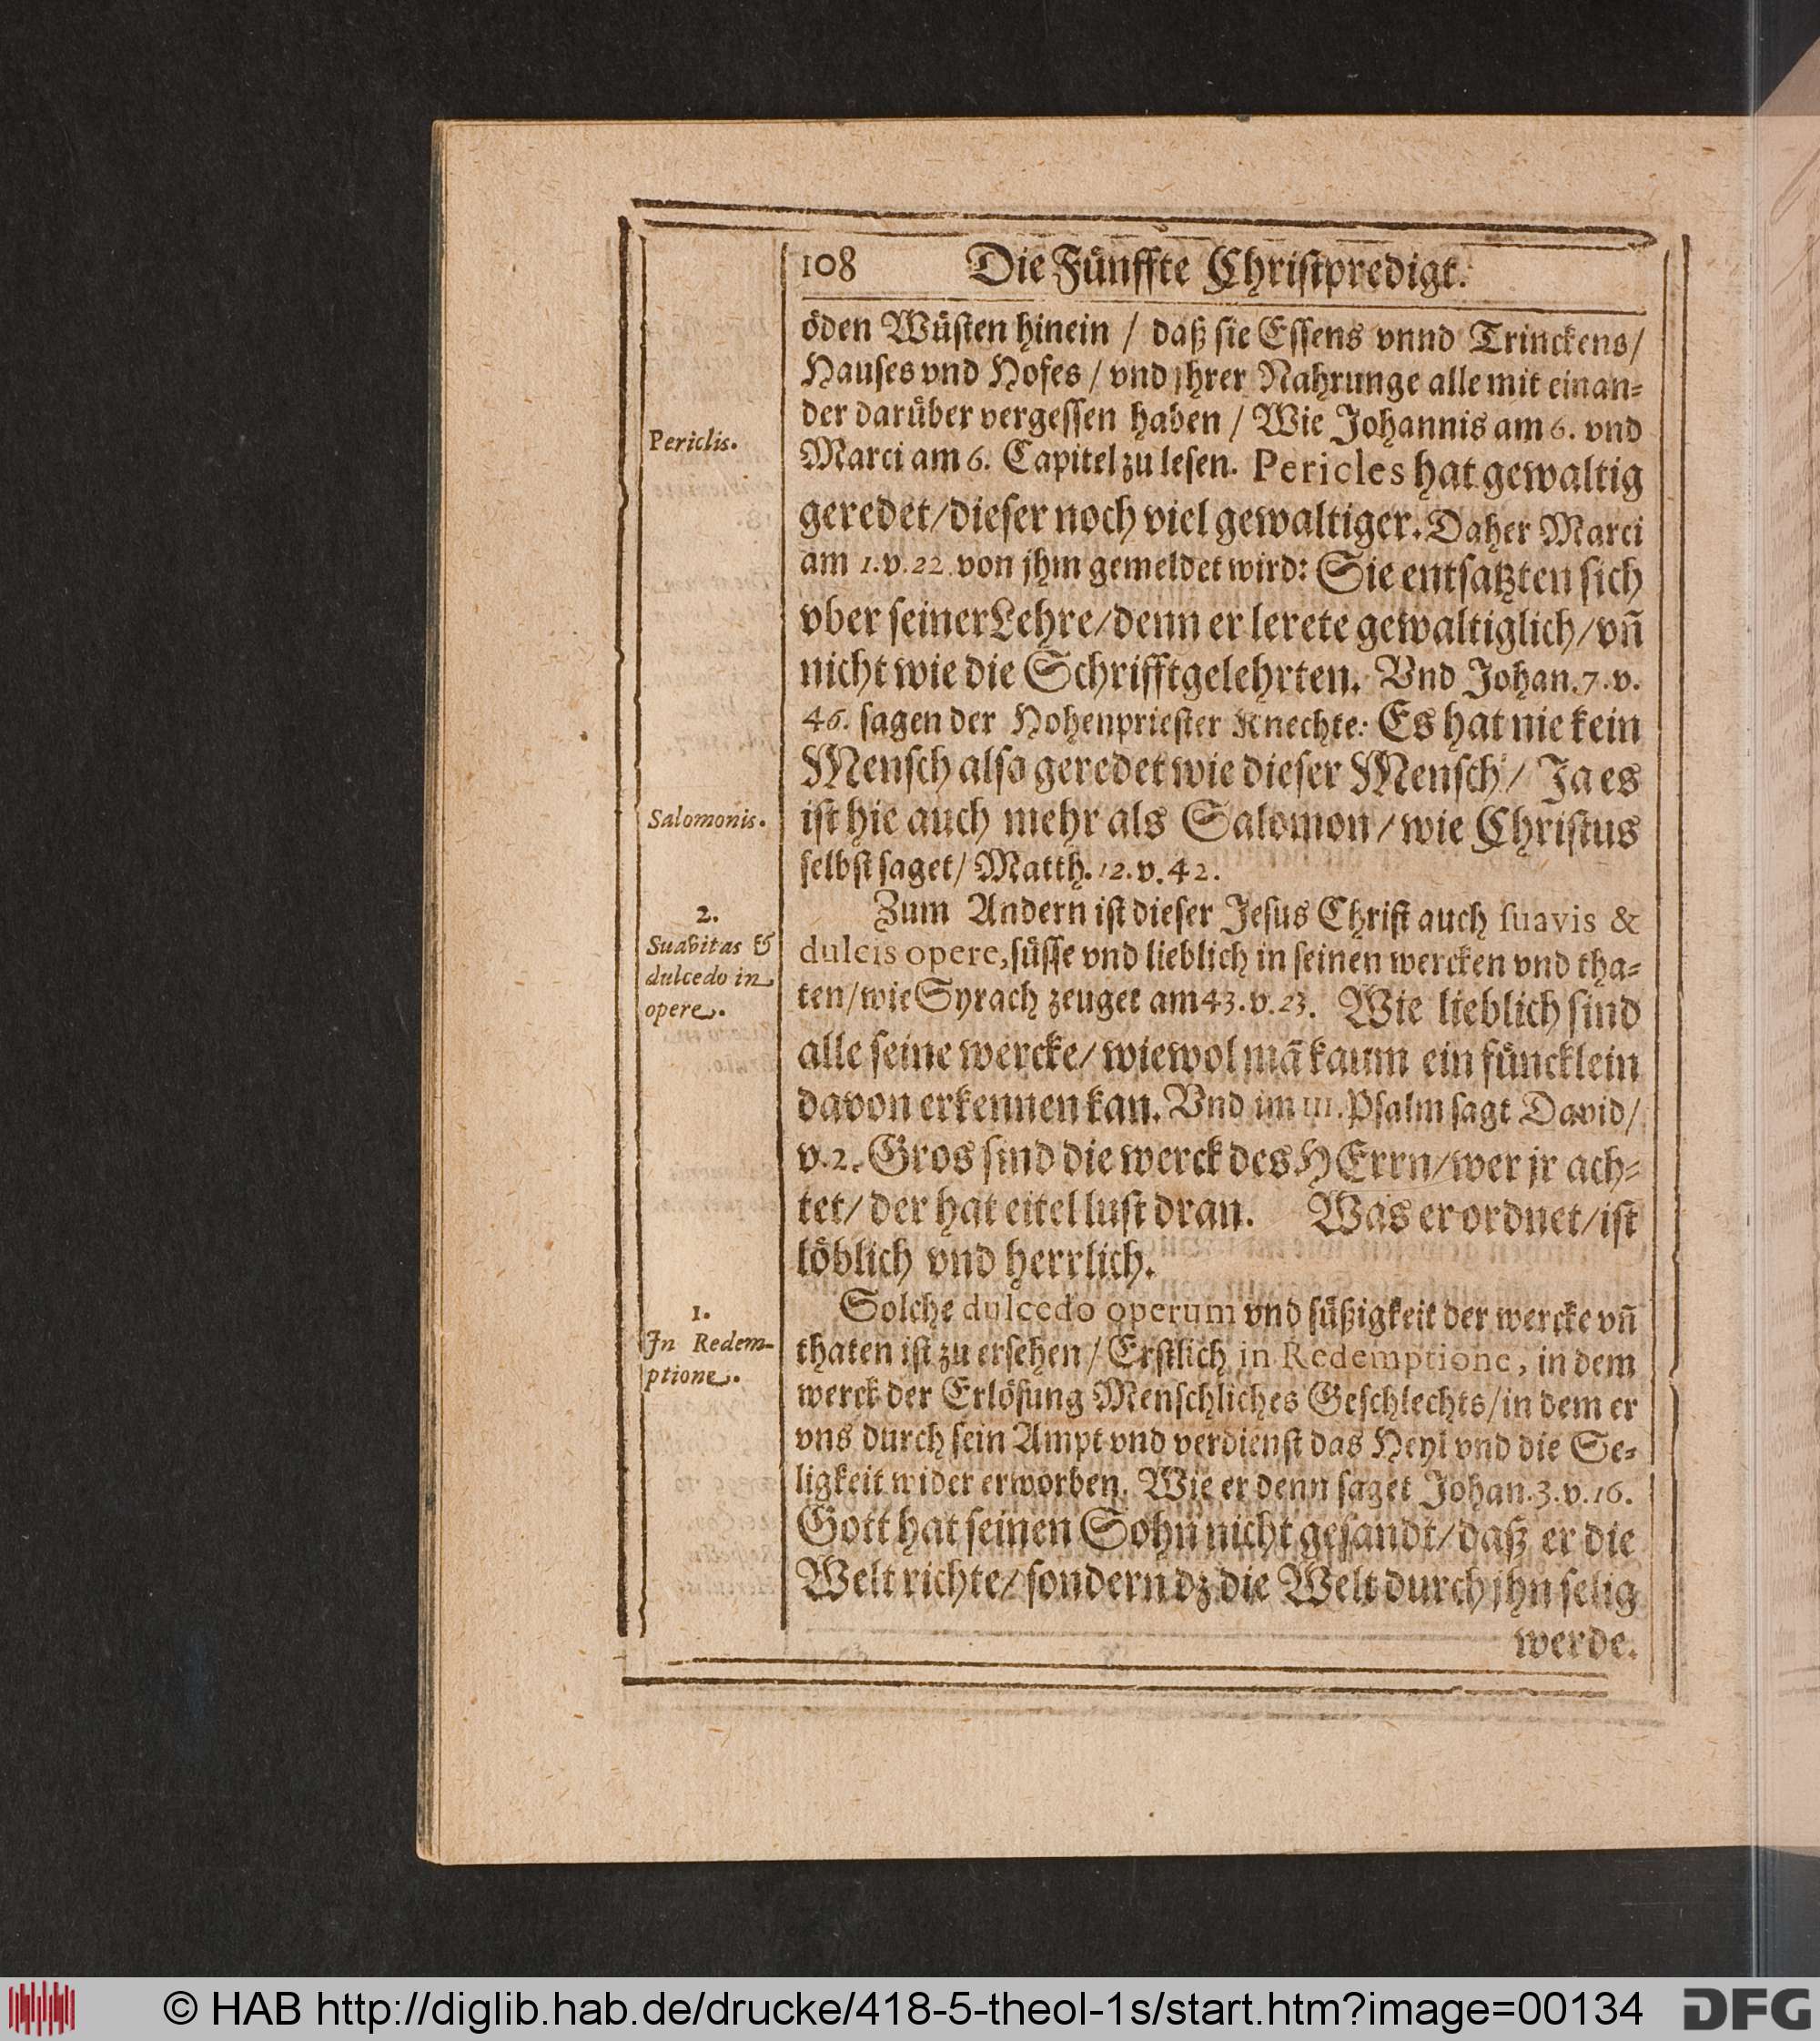 108 Die Fünffte Christpredigt.
öden Wüsten hinein / daß sie Essens vnnd Trinckens/
Hauses vnd Hofes / vnd jhrer Nahrunge alle mit einan-
der darüber vergessen haben / Wie Johannis am 6. vnd
Periclis.
Marci am 6. Capitel zu lesen. Pericles hat gewaltig
geredet/dieser noch viel gewaltiger. Daher Marci
am 1. v. 22. von jhm gemeldet wird: Sie entsatzten sich
vber seiner Lehre/denn er lerete gewaltiglich/vñ
nicht wie die Schrifftgelehrten. Vnd Johan. 7. v.
46. sagen der Hohenpriester Knechte: Es hat nie kein
Mensch also geredet wie dieser Mensch/ Ja es
Salomonis.
ist hie auch mehr als Salomon/wie Christus
selbst saget/ Matth. 12. v. 42.
2.
Suavitas &
dulcedo in
opere.
Zum Andern ist dieser Jesus Christ auch suavis &
dulcis opere, süsse vnd lieblich in seinen wercken vnd tha-
ten/wie Syrach zeuget am 43. v. 23. Wie lieblich sind
alle seine wercke/wiewol mã kaum ein füncklein
davon erkennen kan. Vnd im 111. Psalm sagt David/
v. 2. Gros sind die werck des HErrn/wer jr ach-
tet/der hat eitel lust dran. Was er ordnet/ist
löblich vnd herrlich.
1.
In Redem-
ptione.
Solche dulcedo operum vnd süßigkeit der wercke vñ
thaten ist zu ersehen / Erstlich in Redemptione, in dem
werck der Erlösung Menschliches Geschlechts/in dem er
vns durch sein Ampt vnd verdienst das Heyl vnd die Se-
ligkeit wider erworben. Wie er denn saget Johan. 3. v. 16.
Gott hat seinen Sohn nicht gesandt/daß er die
Welt richte/sondern dz die Welt durch jhn selig
werde.
© HAB http://diglib.hab.de/drucke/418-5-theol-1s/start.htm?image=00134
DFG